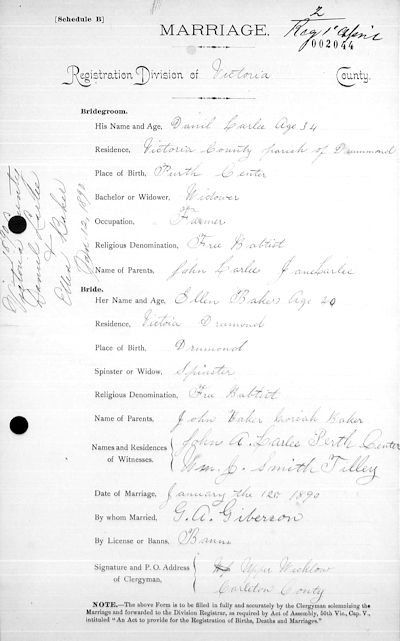 [Schedule B]
2
MARRIAGE.
002044
Registration Division of Victoria County.
Bridegroom.
His Name and Age, Danil Larlee Age 34
Residence, Victoria County parish of Drummond
Place of Birth, Purth Center
Bachelor or Widower, Widower
Occupation, Farmer
Religious Denomination, Free Babtist
Name of Parents, John Larlee Jane Larlee
Bride.
Her Name and Age, Ellen Baker Age 20
Residence, Victoia Dramond
Place of Birth, Drumond
Spinster or Widow, Spinster
Religious Denomination, Free Babtist
Name of Parents, John Baker Baker
Names and Residences of Witnesses.
John A. Larlee Perth Center
Wm. J. Smith Tilley
Date of Marriage, January the 12th 1890
By whom Married, G. A. Giberson
By License or Banns, Banns
Signature and P. O. Address of Clergyman,
Upper Wicklow
Carleton County
NOTE.—The above Form is to be filled in fully and accurately by the Clergyman solemnizing the
Marriage and forwarded to the Division Registrar, as required by Act of Assembly, 50th Vic., Cap. V.,
intituled "An Act to provide for the Registration of Births, Deaths and Marriages."
Victoria County
Daniel Larlee
&
Ellen Baker
12, 1890